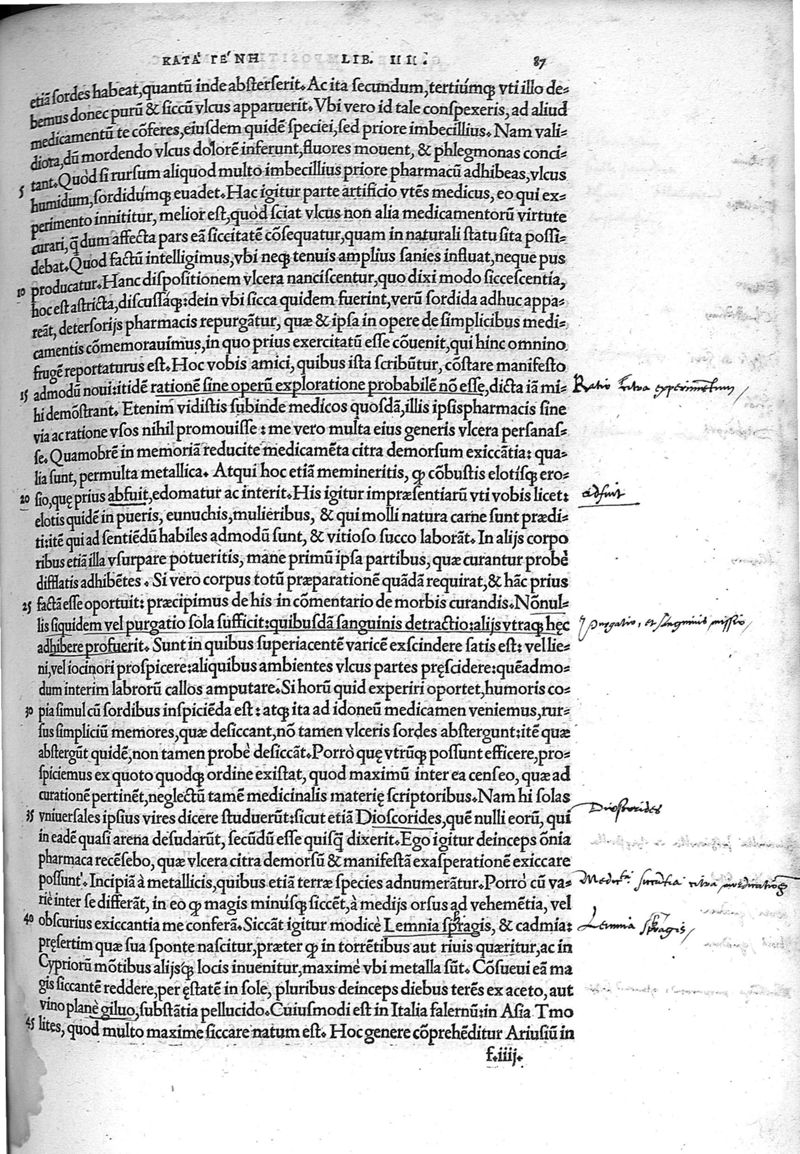 ΚΑΤΑ' ΓΕ'ΝΗ LIB. IIII. 87
etiā ſordes habeat, quantū inde abſterſerit. Ac ita ſecundum, tertiumq́; vti illo de-
bemus donec purū & ſiccū vlcus apparuerit. Vbi vero id tale conſpexeris, ad aliud
medicamentū te cōferes, eiuſdem quidē ſpeciei, ſed priore imbecillius. Nam vali-
diora, dū mordendo vlcus dolorē inferunt, fluores mouent, & phlegmonas conci-
5 tant. Quòd ſi rurſum aliquod multo imbecillius priore pharmacū adhibeas, vlcus
humidum, ſordidúmq; euadet. Hac igitur parte artificio vtēs medicus, eo qui ex-
perimento innititur, melior eſt, quòd ſciat vlcus non alia medicamentorū virtute
curari, q̄ dum affecta pars eā ſiccitatē cōſequatur, quam in naturali ſtatu ſita poſſi-
debat. Quod factū intelligimus, vbi neq; tenuis amplius ſanies influat, neque pus
10 producatur. Hanc diſpoſitionem vlcera nanciſcentur, quo dixi modo ſicceſcentia,
hoc eſt aſtricta, diſcuſſáq; : dein vbi ſicca quidem fuerint, verū ſordida adhuc appa-
reāt, deterſorijs pharmacis repurgātur, quæ & ipſa in opere de ſimplicibus medi-
camentis cōmemorauimus, in quo prius exercitatū eſſe cōuenit, qui hinc omnino
frugē reportaturus eſt. Hoc vobis amici, quibus iſta ſcribūtur, cōſtare manifeſto
15 admodū noui: itidē rationē ſine operū exploratione probabilē nō eſſe, dicta iā mi- Ratio citra experimentum
hi demōſtrant. Etenim vidiſtis ſubinde medicos quoſdā, illis ipſis pharmacis ſine
via ac ratione vſos nihil promouiſſe : me vero multa eius generis vlcera perſanaſ-
ſe. Quamobrē in memoriā reducite medicamēta citra demorſum exiccātia: qua-
lia ſunt, permulta metallica. Atqui hoc etiā memineritis, ꝙ cōbuſtis elotiſq; ero-
20 ſio, quę prius abfuit, edomatur ac interit. His igitur impræſentiarū vti vobis licet: adfuit
elotis quidē in pueris, eunuchis, mulieribus, & qui molli natura carne ſunt prædi-
ti: itē qui ad ſentiēdū habiles admodū ſunt, & vitioſo ſucco laborāt. In alijs corpo
ribus etiā illa vſurpare potueritis, mane primū ipſa partibus, quæ curantur probè
difflatis adhibētes. Si vero corpus totū præparationē quādā requirat, & hāc prius
25 factā eſſe oportuit: præcipimus de his in cōmentario de morbis curandis. Nōnul-
lis ſiquidem vel purgatio ſola ſufficit: quibuſdā ſanguinis detractio: alijs vtraq; hęc purgatio, et sanguinis missio
adhibere profuerit. Sunt in quibus ſuperiacentē varicē exſcindere ſatis eſt: vel lie-
ni, vel iocinori proſpicere: aliquibus ambientes vlcus partes pręſcidere: quēadmo-
dum interim labrorū callos amputare. Si horū quid experiri oportet, humoris co-
30 pia ſimul cū ſordibus inſpiciēda eſt : atq; ita ad idoneū medicam veniemus, rur-
ſus ſimpliciū memores, quæ deſiccant, nō tamen vlceris ſordes abſtergunt: itē quæ
abſtergūt quidē, non tamen probè deſiccāt. Porrò quę vtrūq; poſſunt efficere, pro-
ſpiciemus ex quoto quodq; ordine exiſtat, quod maximū inter ea cenſeo, quæ ad
curationē pertinēt, neglectū tamē medicinalis materię ſcriptoribus. Nam hi ſolas
35 vniuerſales ipſius vires dicere ſtuduerūt: ſicut etiā Dioſcorides, quē nulli eorū, qui Dioscorides
in eadē quaſi arena deſudarūt, ſecūdū eſſe quiſq̄ dixerit. Ego igitur deinceps ōnia
pharmaca recēſebo, quæ vlcera citra demorſū & manifeſtā exaſperationē exiccare
poſſunt. Incipiā à metallicis, quibus etiā terræ ſpecies adnumerātur. Porrò cū va-
riè inter ſe differāt, in eo ꝙ magis minuſq; ſiccēt, à medijs orſus ad vehemētia, vel
40 obſcurius exiccantia me conferā. Siccāt igitur modicè Lemnia ſphragis, & cadmia: Lemnia sphragis
pręſertim quæ ſua ſponte naſcitur, præter ꝙ in torrētibus aut riuis quæritur, ac in
Cypriorū mōtibus alijſq́; locis inuenitur, maximè vbi metalla ſūt. Cōſueui eā ma
gis ſiccantē reddere, per ęſtatē in ſole, pluribus deinceps diebus terēs ex aceto, aut
vino planè giluo, ſubſtātia pellucido. Cuiuſmodi eſt in Italia falernū: in Aſia Tmo
45 lites, quod multo maxime ſiccare natum eſt. Hoc genere cōprehēditur Ariuſiū in
f. iiij.